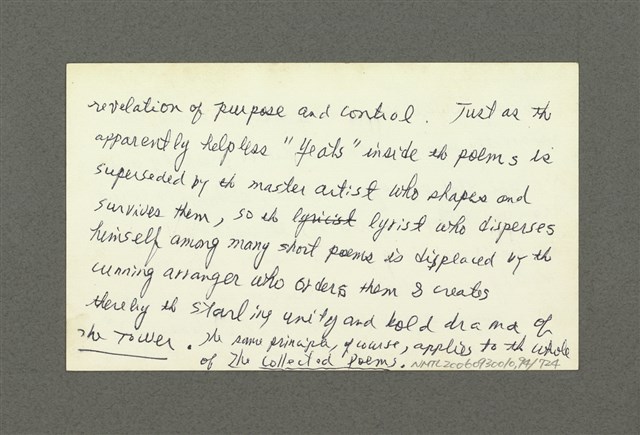 revelation of purpose and control. Just as th
apparently helpless "Yeats" inside th poems is
superseded by th master artist who shapes and
survives them, so th lyricist lyrist who disperses
himself among many short poems is displaced by th
cunning arranger who orders them & creates
thereby th starling unity and bold drama of
The Tower. The same principle, of course, applies to th whole
of The Collected Poems. NMTL20060930010,94/724